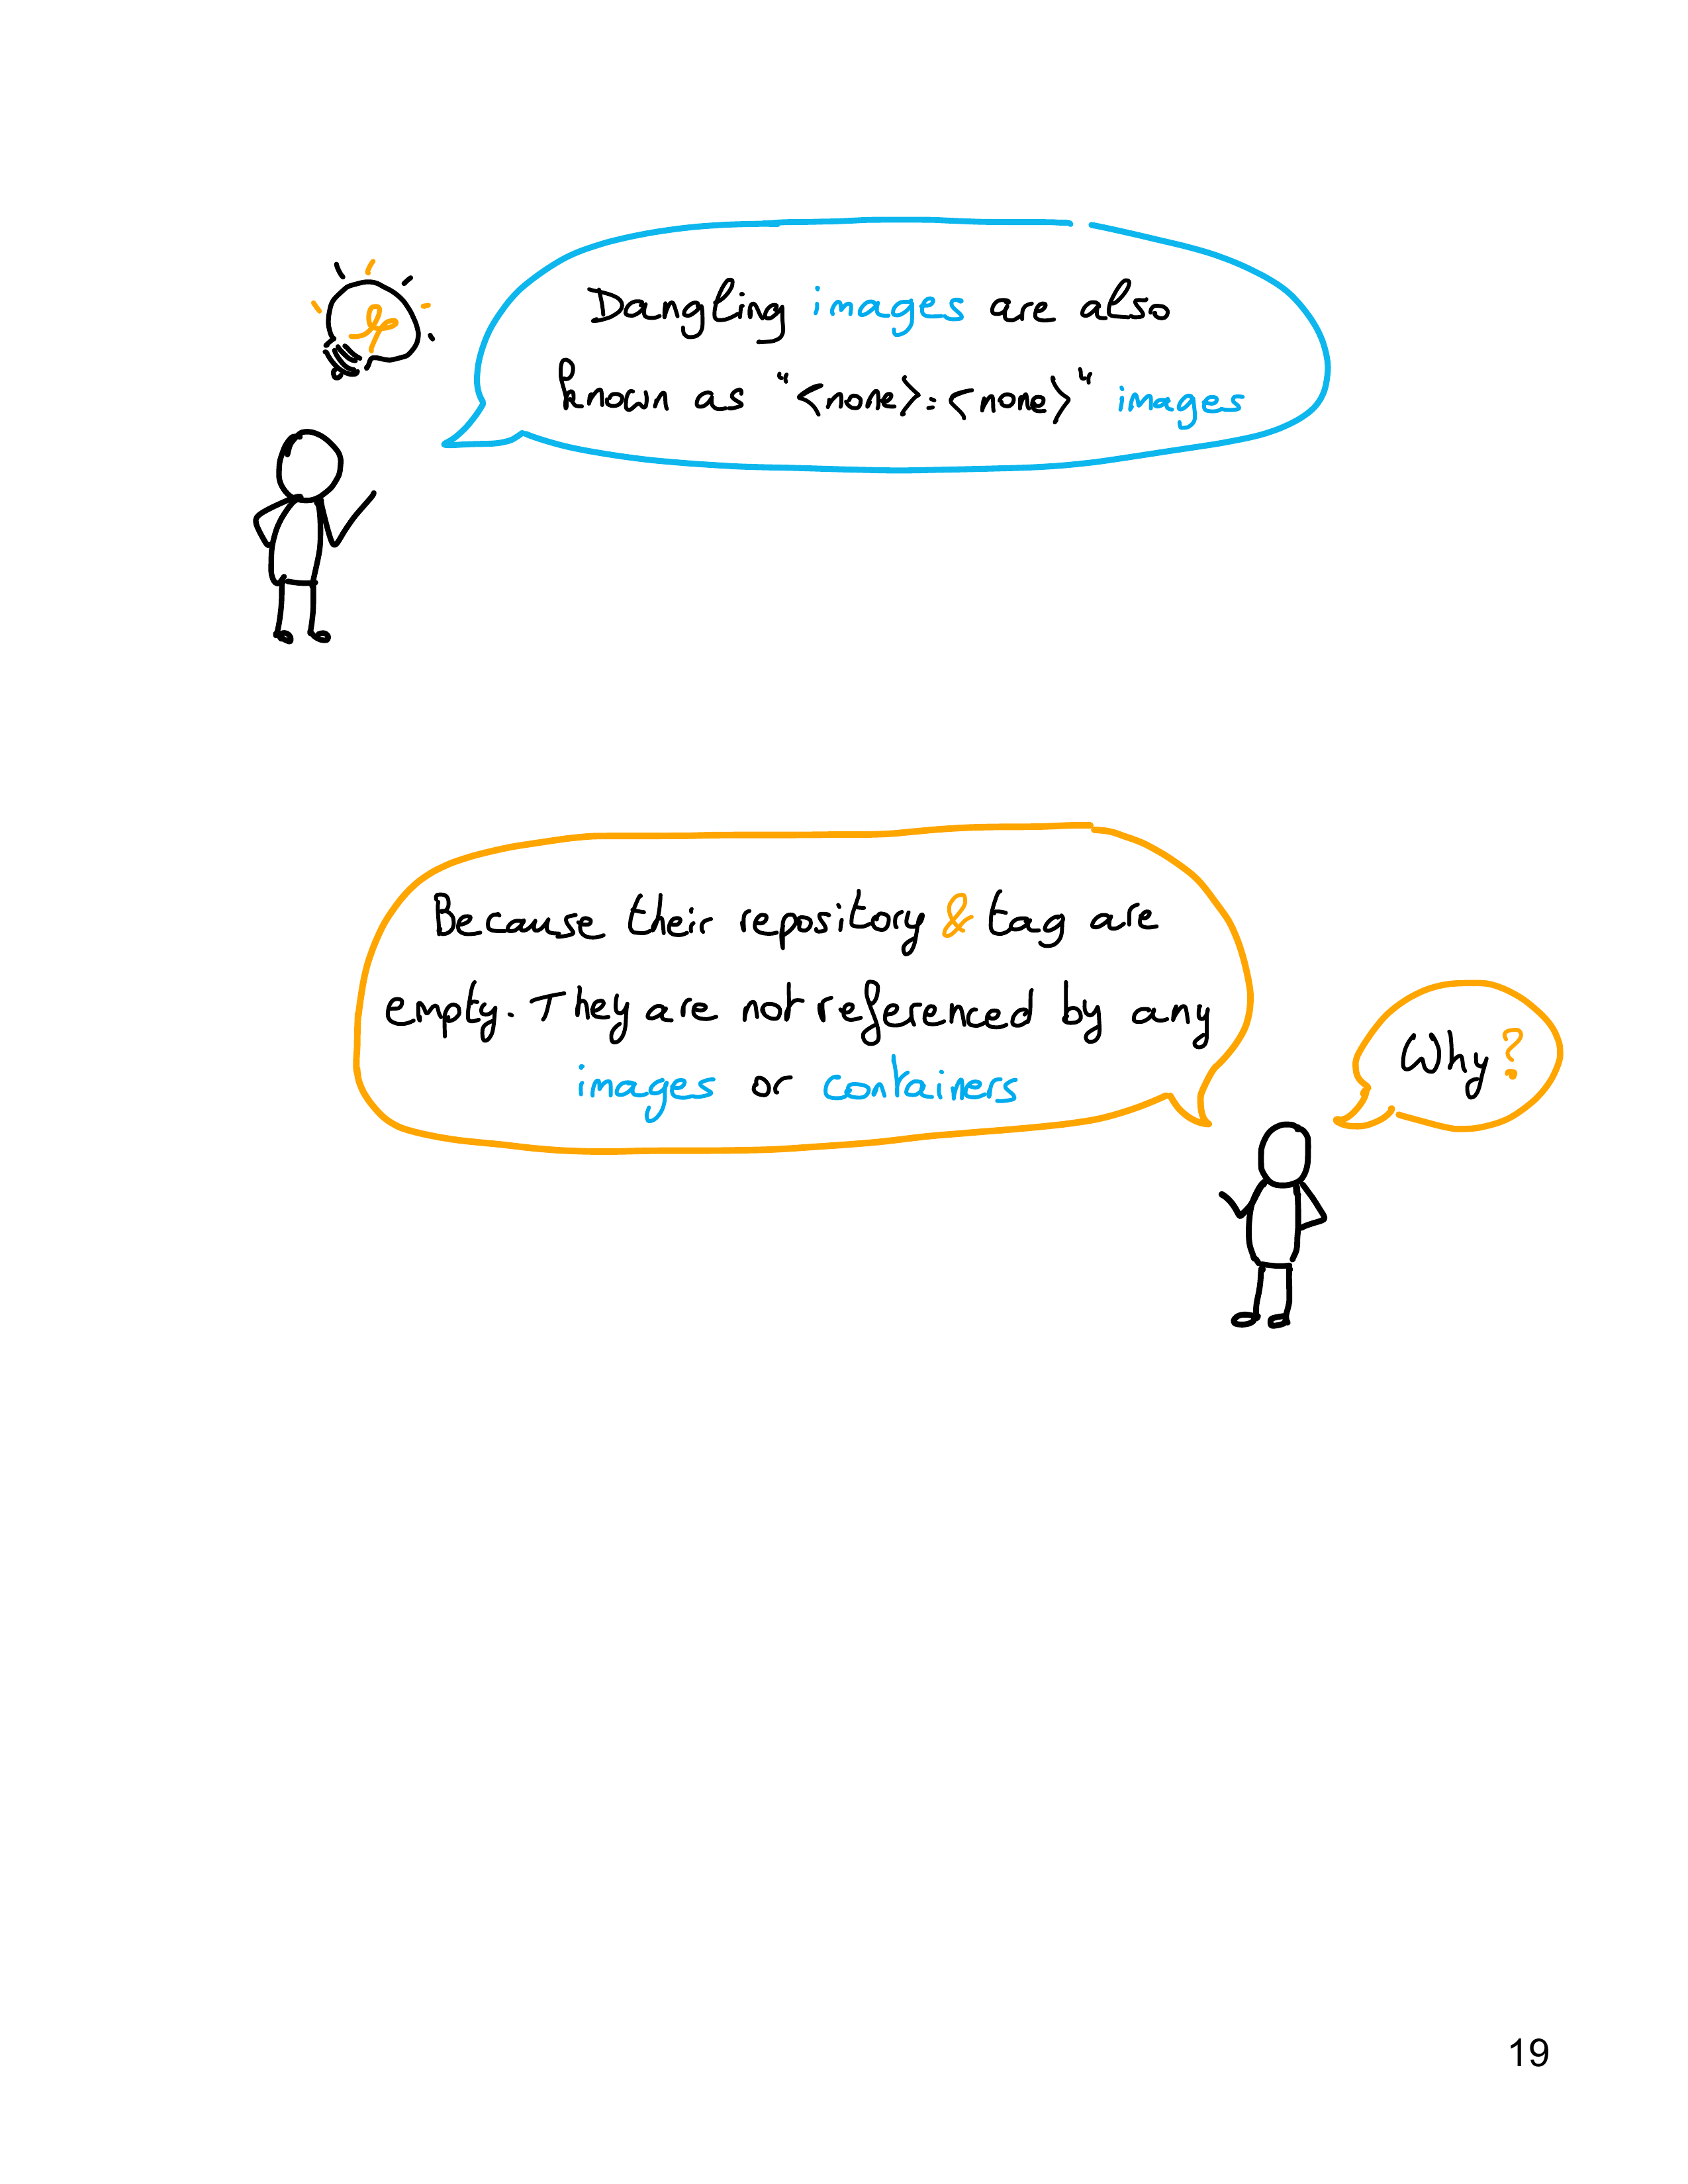 Dangling images are also
known as "<none>:<none>" images
Why?
Because their repository & tag are
empty. They are not referenced by any
images or containers
19